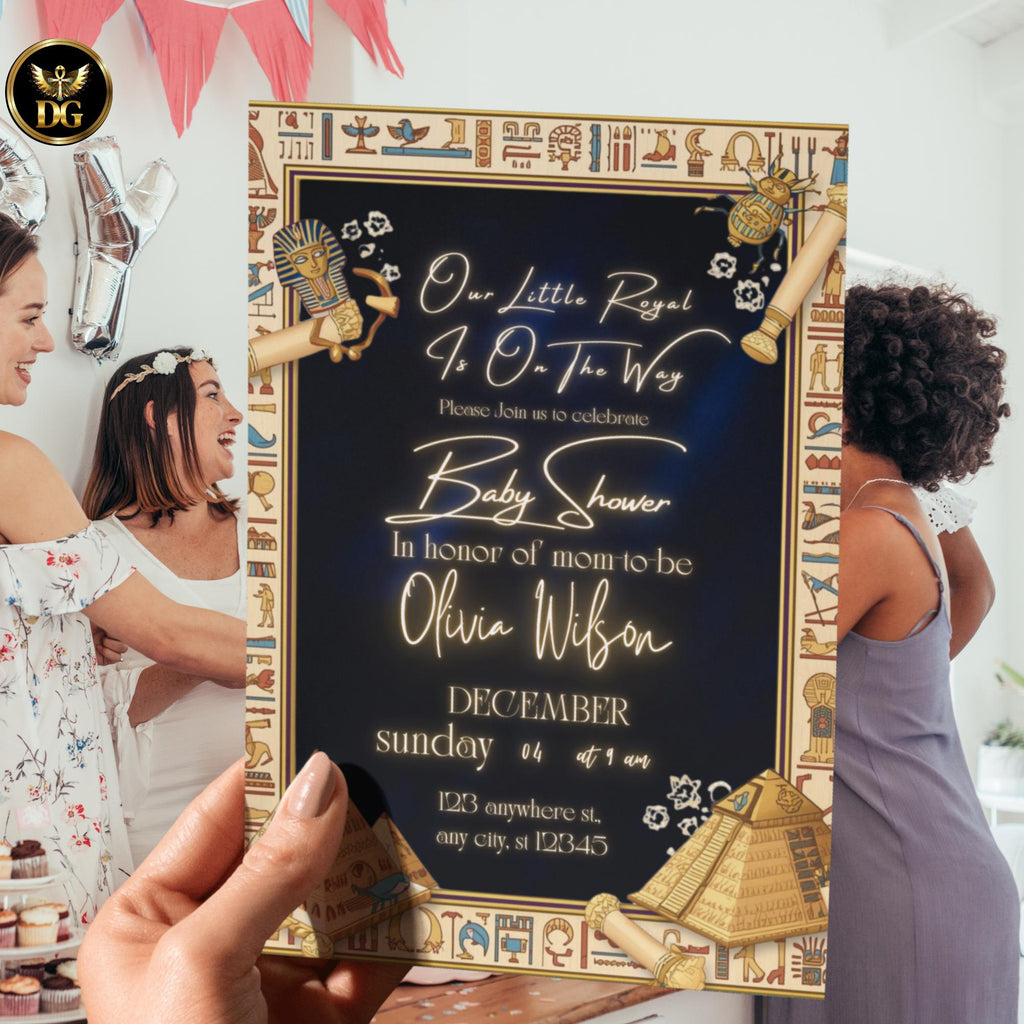 DG
Our Little Royal
Is On The Way
Please Join us to celebrate
Baby Shower
In honor of mom-to-be
Olivia Wilson
DECEMBER
sunday 04 at 9 am
123 anywhere st.,
any city, st 12345